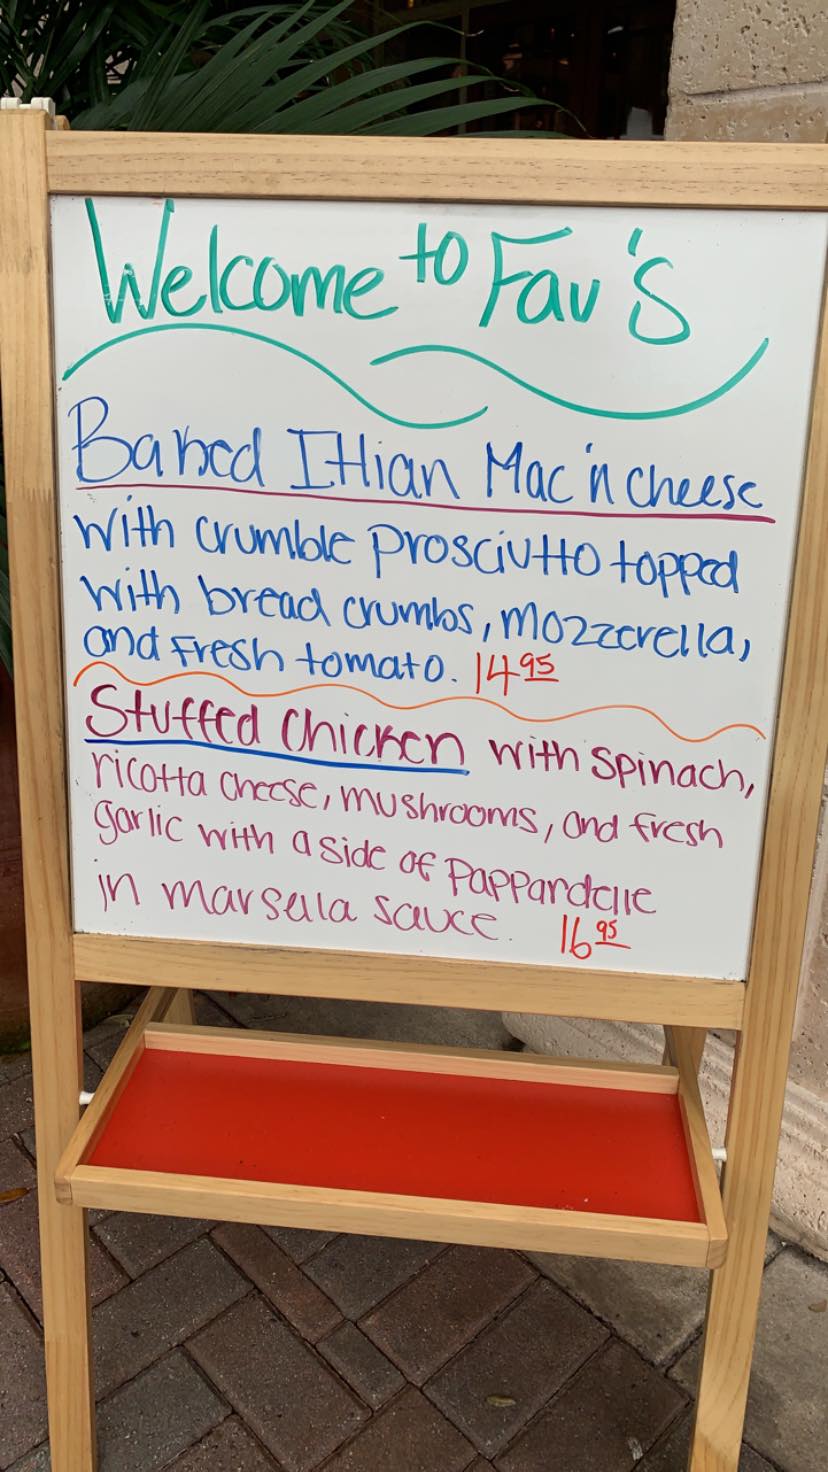 Welcome to Fav's
Baked Itlian Mac 'n cheese
with crumble Prosciutto topped
with bread crumbs, mozzerella,
and fresh tomato. 14 95
Stuffed Chicken with spinach,
ricotta cheese, mushrooms, and fresh
garlic with a side of Pappardelle
in marsala sauce. 16 95